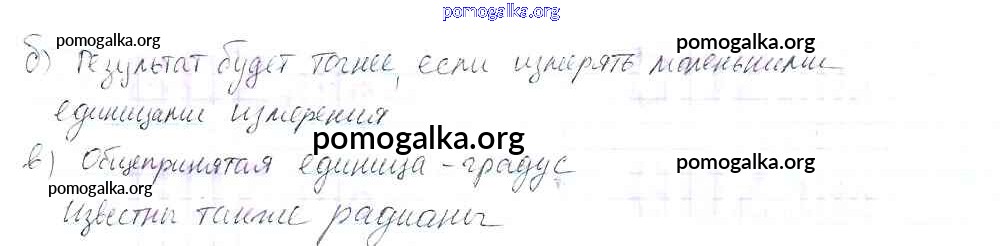 pomogalka.org
pomogalka.org pomogalka.org
б) Результат будет точнее, если измерять маленькими
единицами измерения
pomogalka.org
в) Общепринятая единица - градус
pomogalka.org pomogalka.org
Известны также радианы